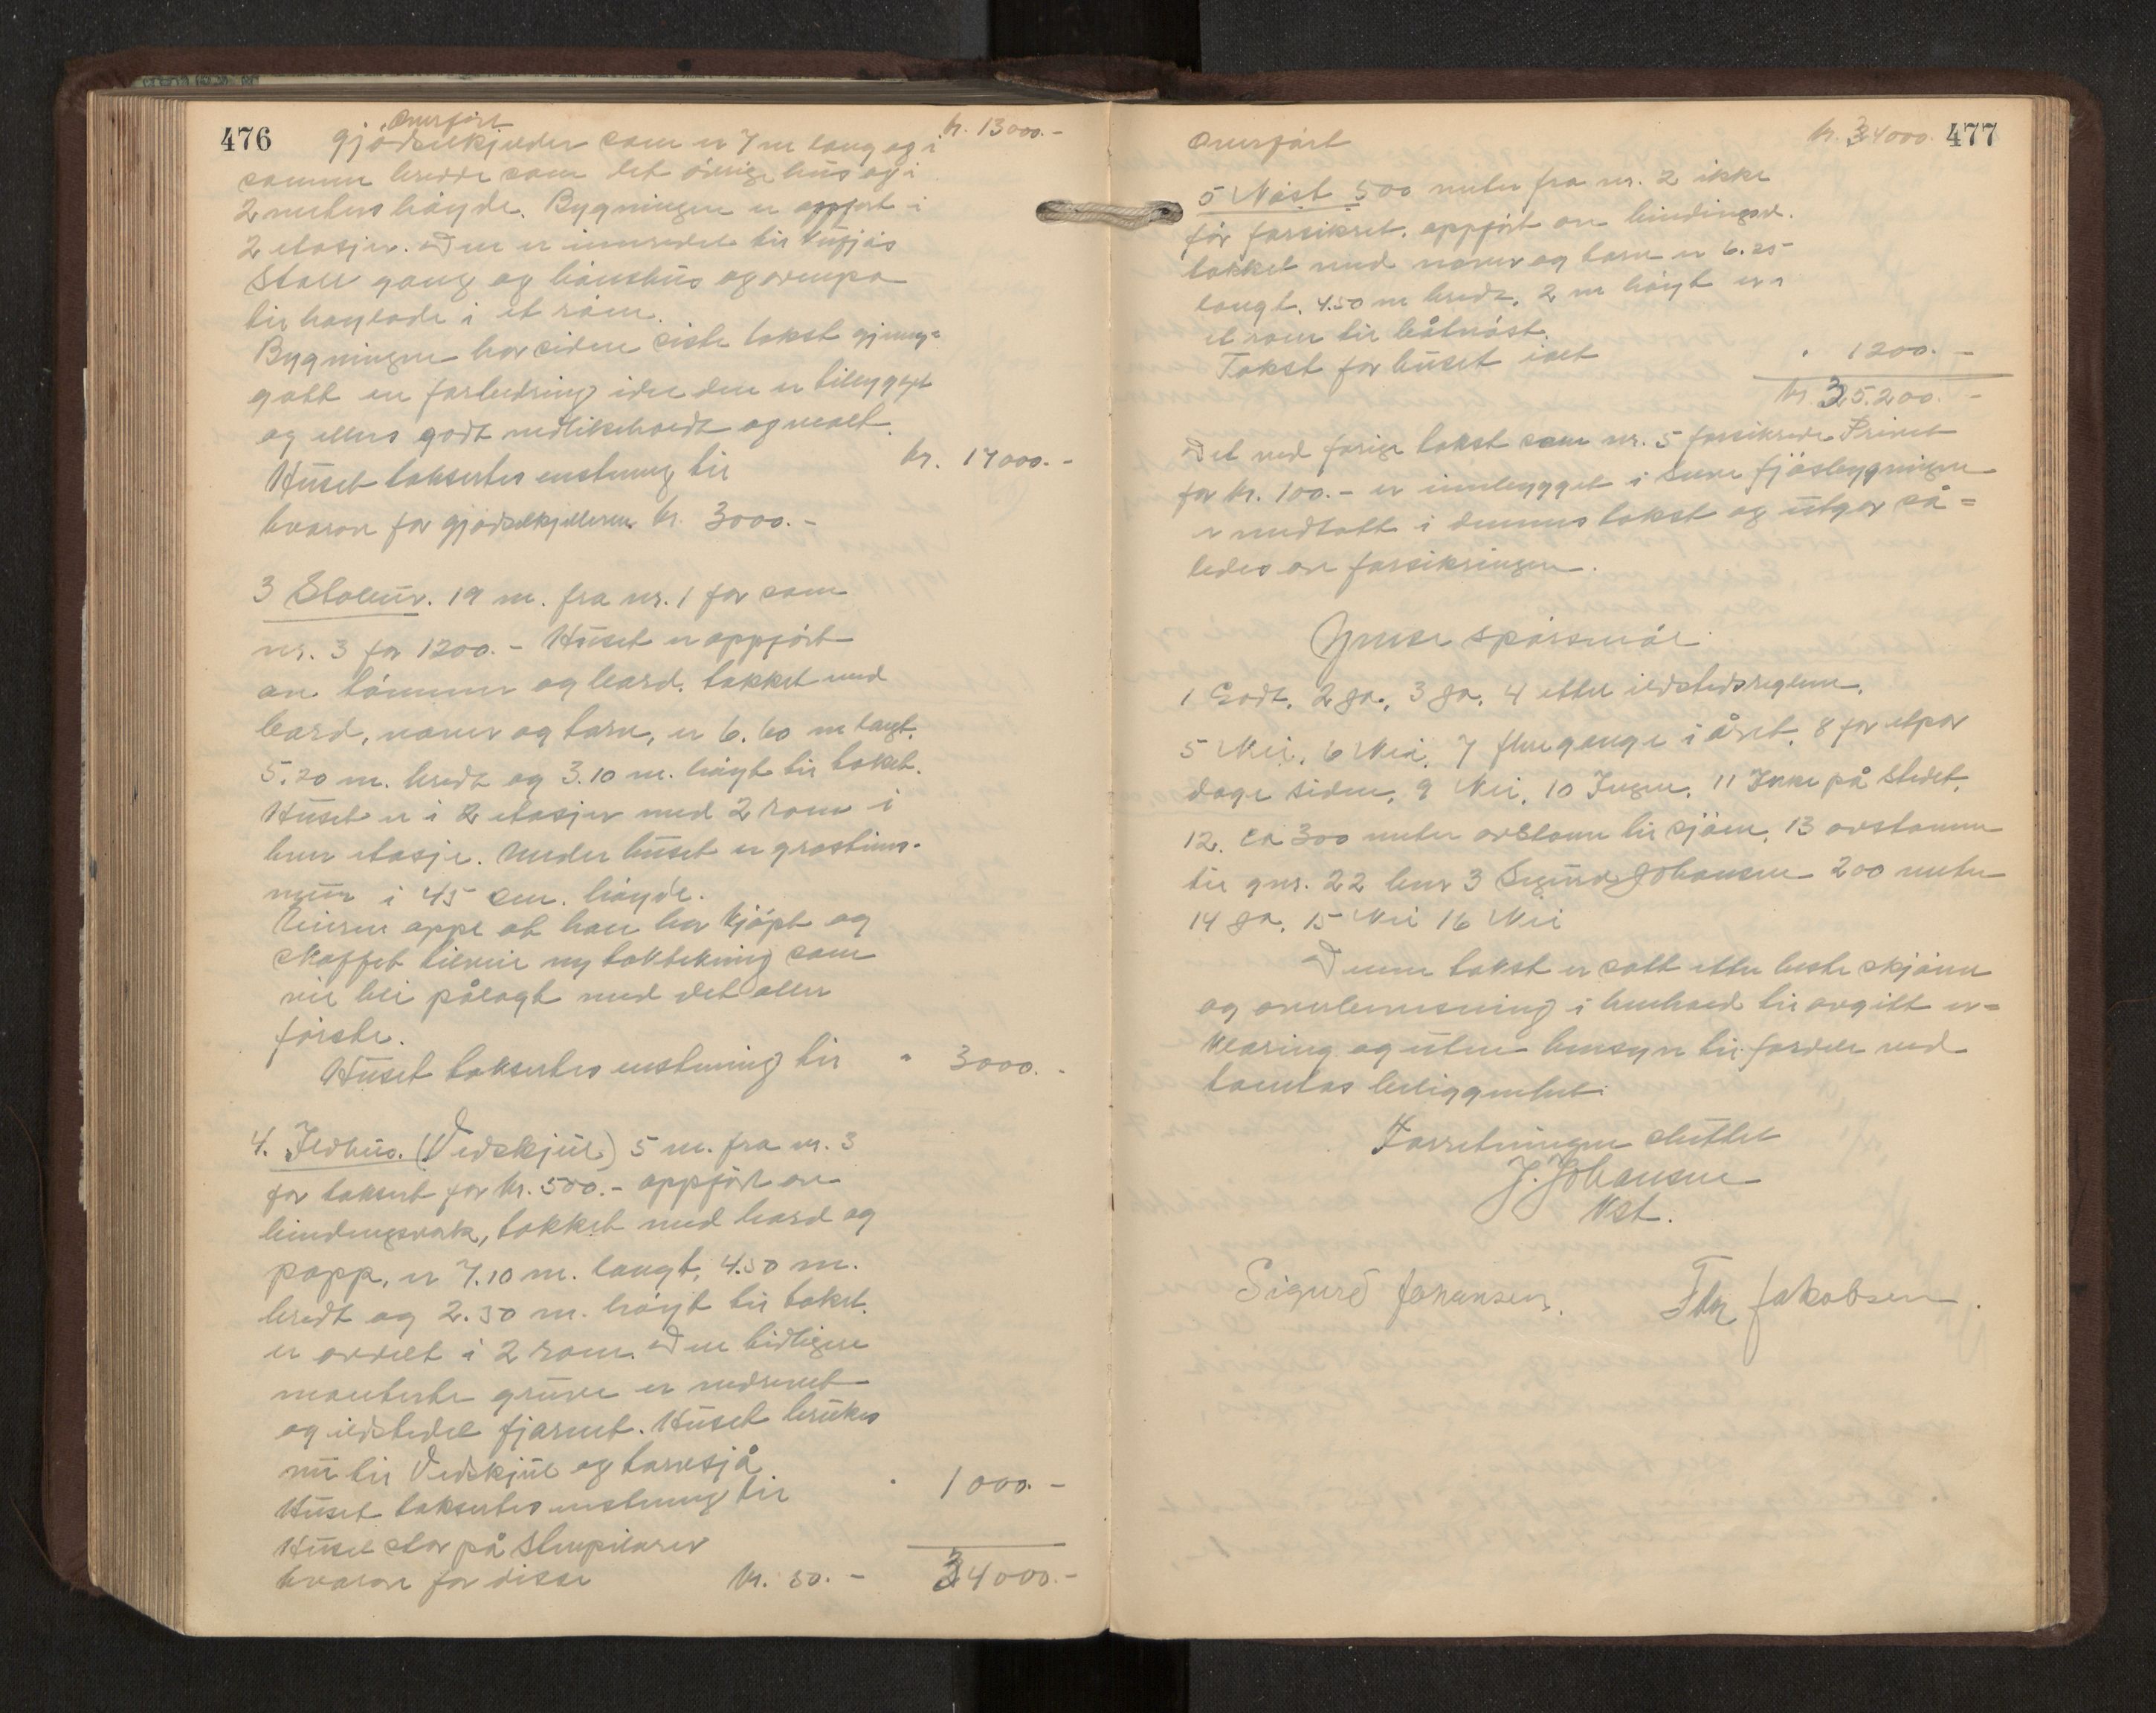 476
Overført kr. 13000.-
gjødselkjelder som er 7 m lang og i
samme bredde som det øvrige hus og i
2 meters høyde. Bygningen er oppført i
2 etasjer. Den er innredet til kufjøs
Stall gang og hønshus og ovenpå
til høylade i et rom.
Bygningen har siden siste takst gjenn=
gått en forbedring idet den er tilbygget
og ellers godt vedlikeholdt og malt.
Huset takseres enstemmig til kr. 17000.-
hvorav for gjødselkjelleren kr. 3000.-
3 Stabur. 19 m. fra nr. 1 før som
nr. 3 for 1200.- Huset er oppført
av tømmer og bord, tekket med
bord, never og torv, er 6.60 m langt,
5.20 m. bredt og 3.10 m. høyt til taket.
Huset er i 2 etasjer med 2 rom i
hver etasje. Under huset er gråstens-
mur i 45 cm. høyde.
Eieren oppg. at han har kjøpt og
skaffet tilveie ny taktekning som
vil bli pålagt med det aller
første.
Huset takseres enstemmig til " 3000.-
4. Ildhus. (Vedskjul) 5 m. fra nr. 3
før taksert for kr. 500.- oppført av
bindingsverk, tekket med bord og
papp, er 7.10 m. langt, 4.50 m.
bredt og 2.30 m. høyt til taket.
er avdelt i 2 rom. Den tidligere
monterte gruve er nedrevet
og ildstedet fjernet. Huset brukes
nu til Vedskjul og torvsjå
Huset takseres enstemmig til " 1000.-
Huset står på Stenpilarer
hvorav for disse kr. 50.- 34000.-
477
Overført kr. 34000.
5 Nøst 500 meter fra nr. 2 ikke
før forsikret. oppført av bindingsv.
tekket med never og torv er 6.25
langt, 4.50 m bredt, 2 m høyt er i
et rom til båtnøst.
Takst for huset i alt " 1200.-
kr. 35.200.-
Det ved forrige takst som nr. 5 forsikrede Privet
for kr. 100.- er innbygget i fjøsbygningen
er medtatt i dennes takst og utgår så=
ledes av forsikringen.
Generelle spørsmål.
1 Godt, 2 Ja., 3 Ja, 4 etter ildstedsreglene.
5 Nei, 6 Nei, 7 flere gange i året, 8 for et par
dage siden, 9 Nei, 10 Ingen, 11 Ikke på stedet,
12. ca 300 meter avstann til sjøen, 13 avstannen
til gnr. 22 bnr 3 Sigurd Johansen 200 meter
14 Ja, 15 Nei 16 Nei
Denne takst er satt etter beste skjønn
og overbevisning i henhold til avgitt er=
klæring og uten hensyn til fordele ved
tomtas beliggenhet.
Forretningen sluttet
J. Johansen
Vst.
Sigurd Johansen. Jakobsen.